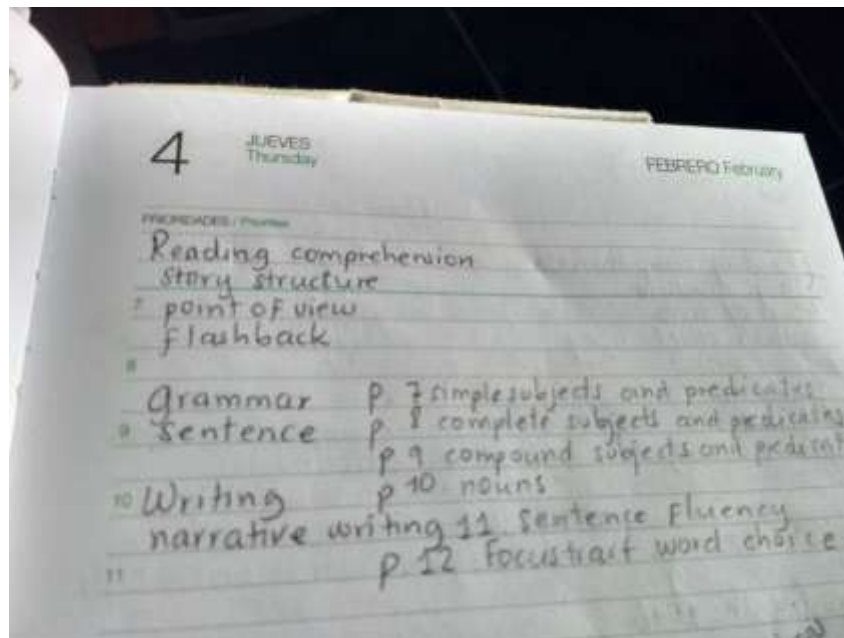 4 JUEVES FEBRERO February
Thursday
PRIORIDADES / Priorities
Reading comprehension
story structure
7 point of view
flashback
8
grammar p. 7 simple subjects and predicates
9 sentence p. 8 complete subjects and predicates
p 9 compound subjects and predicat
10 Writing p 10 nouns
narrative writing 11 Sentence Fluency
11 p. 12 Focus trait word choice